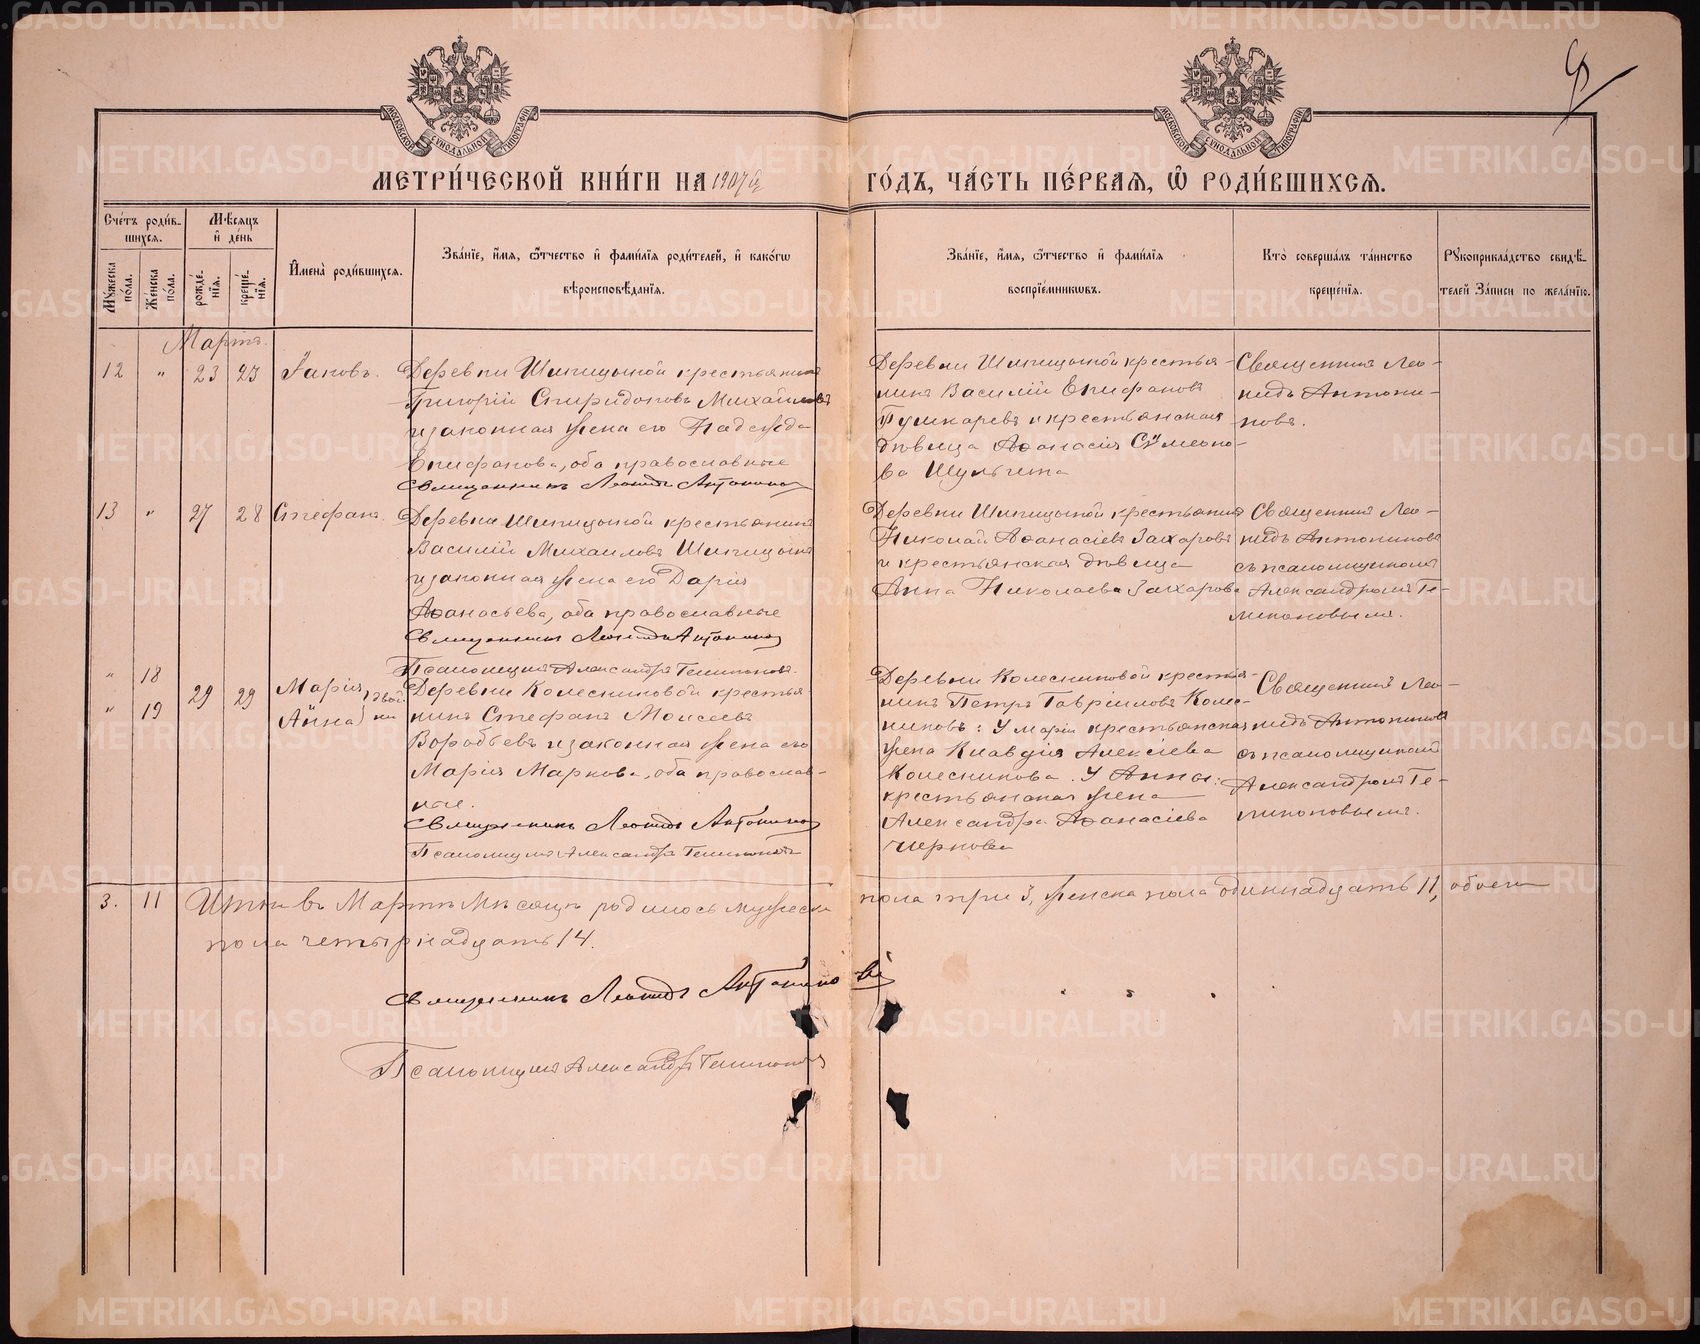 МЕТРИ́ЧЕСКОЙ КНИ́ГИ НА 1907 й ГО́ДЪ, ЧА́СТЬ ПЕ́РВАЯ, Ѿ РОДИ́ВШИХСЯ.
МОСКОВСКОЙ СУНОДАЛЬНОЙ ТИПОГРАФІИ
МОСКОВСКОЙ СУНОДАЛЬНОЙ ТИПОГРАФІИ
Сче́тъ роди́в-
шихся.
Мꙋ́жеска по́ла.
Же́нска по́ла.
Мѣ́сяцъ
и҆ де́нь
рожде́нїя.
креще́нїя.
И҆мена̀ роди́вшихся.
Зва́нїе, и҆́мя, ѻ҆́тчество и҆ фами́лїя роди́телей, и҆ како́гѡ
вѣроисповѣ́данїя.
Зва́нїе, и҆́мя, ѻ҆́тчество и҆ фами́лїя
воспрїе́мникѡвъ.
Кто̀ соверша́лъ та́инство
креще́нїя.
Рꙋкоприкла́дство свидѣ́-
телей За́писи по жела́нїю.
Мартъ.
12 " 23 23 Іаковъ.
Деревни Шипицыной крестьянинъ
Григорій Спиридоновъ Михайловъ
и законная жена его Надежда
Епифанова, оба православные
Священникъ Леонидъ Антониновъ
Деревни Шипицыной крестья-
нинъ Василій Епифановъ
Пушкаревъ и крестьянская
дѣвица Аѳанасія Сѵмеоно-
ва Шульгина
Священникъ Лео-
нидъ Антони-
новъ.
13 " 27 28 Стефанъ.
Деревни Шипицыной крестьянинъ
Василій Михаиловъ Шипицынъ
и законная жена его Дарія
Аѳанасьева, оба православные
Священникъ Леонидъ Антониновъ
Псаломщикъ Александръ
Деревни Шипицыной крестьянинъ
Николай Аѳанасіевъ Захаровъ
и крестьянская дѣвица
Анна Николаева Захарова
Священникъ Лео-
нидъ Антониновъ
съ псаломщикомъ
Александромъ
" 18
" 19
29 29
Марія
Анна
двой
ни
Деревни Колесниковой крестья-
нинъ Стефанъ Моисеевъ
Воробьевъ и законная жена его
Марія Маркова, оба православ-
ные.
Священникъ Леонидъ Антониновъ
Псаломщикъ Александръ
Деревни Колесниковой крестья-
нинъ Петръ Гавріиловъ Колес-
никовъ: У Маріи крестьянская
жена Клавдія Алексіева
Колесникова. У Анны:
крестьянская жена
Александра Аѳанасіева
Чернова
Священникъ Лео-
нидъ Антониновъ
съ псаломщикомъ
Александромъ
3. 11 Итого въ Мартѣ Мѣсяцѣ родилось мужеска пола три 3, женска пола одиннадцать 11, обоего
пола четырнадцать 14.
Священникъ Леонидъ Антониновъ
Псаломщикъ Александръ
METRIKI.GASO-URAL.RU